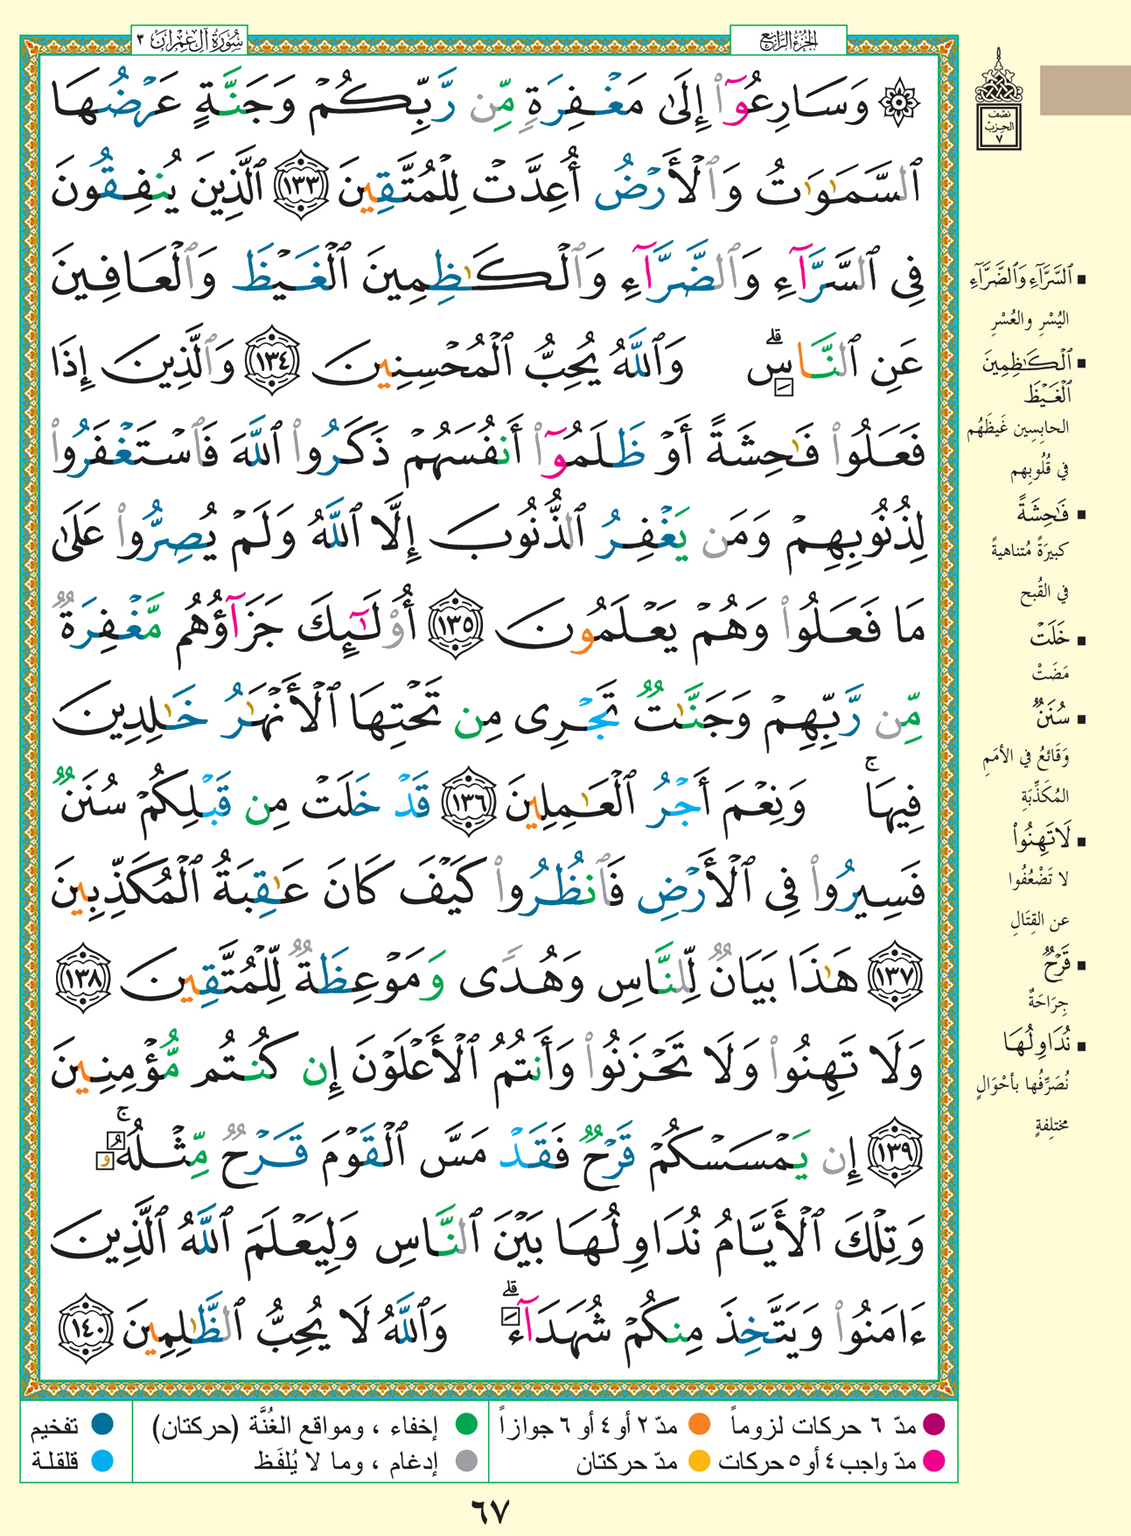 سُورَةُ آلِ عِمْرَان ٣
الجزء الرابع
۞ وَسَارِعُوٓا۟ إِلَىٰ مَغْفِرَةٍ مِّن رَّبِّكُمْ وَجَنَّةٍ عَرْضُهَا
ٱلسَّمَـٰوَٰتُ وَٱلْأَرْضُ أُعِدَّتْ لِلْمُتَّقِينَ ١٣٣ ٱلَّذِينَ يُنفِقُونَ
فِى ٱلسَّرَّآءِ وَٱلضَّرَّآءِ وَٱلْكَـٰظِمِينَ ٱلْغَيْظَ وَٱلْعَافِينَ
عَنِ ٱلنَّاسِ ۗ وَٱللَّهُ يُحِبُّ ٱلْمُحْسِنِينَ ١٣٤ وَٱلَّذِينَ إِذَا
فَعَلُوا۟ فَـٰحِشَةً أَوْ ظَلَمُوٓا۟ أَنفُسَهُمْ ذَكَرُوا۟ ٱللَّهَ فَٱسْتَغْفَرُوا۟
لِذُنُوبِهِمْ وَمَن يَغْفِرُ ٱلذُّنُوبَ إِلَّا ٱللَّهُ وَلَمْ يُصِرُّوا۟ عَلَىٰ
مَا فَعَلُوا۟ وَهُمْ يَعْلَمُونَ ١٣٥ أُو۟لَـٰٓئِكَ جَزَآؤُهُم مَّغْفِرَةٌ
مِّن رَّبِّهِمْ وَجَنَّـٰتٌ تَجْرِى مِن تَحْتِهَا ٱلْأَنْهَـٰرُ خَـٰلِدِينَ
فِيهَا ۚ وَنِعْمَ أَجْرُ ٱلْعَـٰمِلِينَ ١٣٦ قَدْ خَلَتْ مِن قَبْلِكُمْ سُنَنٌ
فَسِيرُوا۟ فِى ٱلْأَرْضِ فَٱنظُرُوا۟ كَيْفَ كَانَ عَـٰقِبَةُ ٱلْمُكَذِّبِينَ
١٣٧ هَـٰذَا بَيَانٌ لِّلنَّاسِ وَهُدًى وَمَوْعِظَةٌ لِّلْمُتَّقِينَ ١٣٨
وَلَا تَهِنُوا۟ وَلَا تَحْزَنُوا۟ وَأَنتُمُ ٱلْأَعْلَوْنَ إِن كُنتُم مُّؤْمِنِينَ
١٣٩ إِن يَمْسَسْكُمْ قَرْحٌ فَقَدْ مَسَّ ٱلْقَوْمَ قَرْحٌ مِّثْلُهُۥ ۚ
وَتِلْكَ ٱلْأَيَّامُ نُدَاوِلُهَا بَيْنَ ٱلنَّاسِ وَلِيَعْلَمَ ٱللَّهُ ٱلَّذِينَ
ءَامَنُوا۟ وَيَتَّخِذَ مِنكُمْ شُهَدَآءَ ۗ وَٱللَّهُ لَا يُحِبُّ ٱلظَّـٰلِمِينَ ١٤٠
نصف
الحزب
٧
▪ ٱلسَّرَّآءِ وَٱلضَّرَّآءِ
اليُسْرِ والعُسْرِ
▪ ٱلْكَـٰظِمِينَ
ٱلْغَيْظَ
الحابِسِين غَيظَهُم
في قُلُوبِهِم
▪ فَـٰحِشَةً
كبيرَةً مُتناهيةً
في القُبح
▪ خَلَتْ
مَضَتْ
▪ سُنَنٌ
وَقَائعُ في الأمَمِ
المُكَذِّبَةِ
▪ لَا تَهِنُوا۟
لا تَضْعُفُوا
عن القِتَالِ
▪ قَرْحٌ
جِرَاحَةٌ
▪ نُدَاوِلُهَا
نُصَرِّفُها بأحْوَالٍ
مختلِفةٍ
مدّ ٦ حركات لزوماً مدّ ٢ أو ٤ أو ٦ جوازاً إخفاء ، ومواقع الغُنَّة (حركتان) تفخيم
مدّ واجب ٤ أو ٥ حركات مدّ حركتان إدغام ، وما لا يُلفَظ قلقلة
٦٧